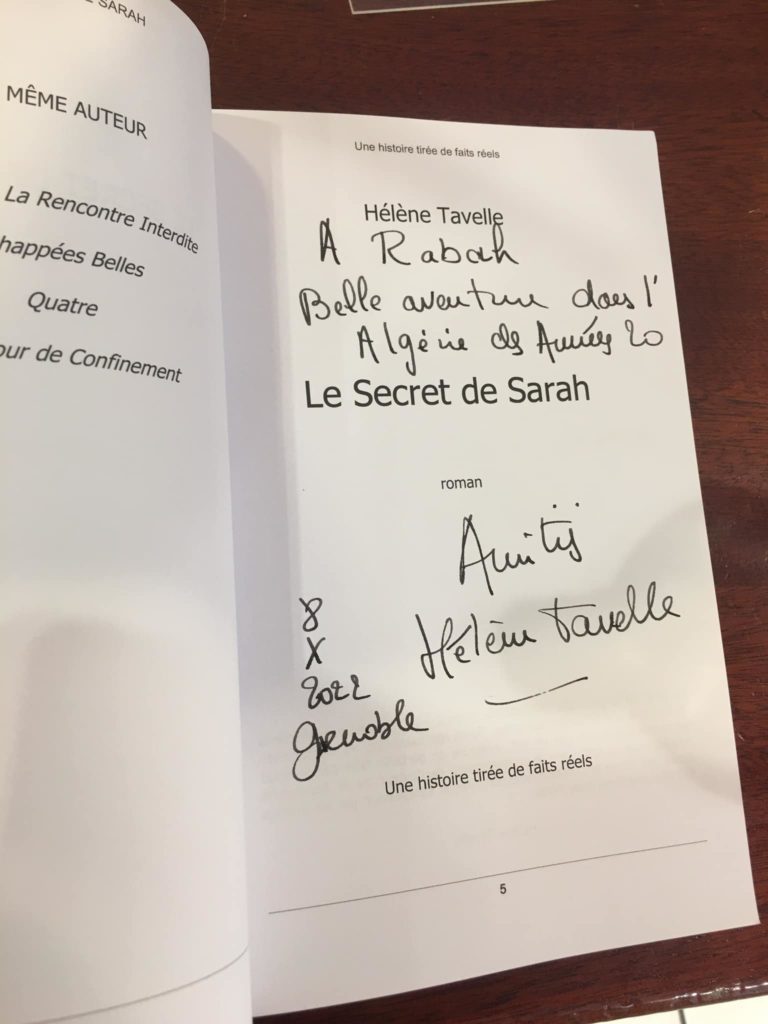 SARAH
MÊME AUTEUR
La Rencontre Interdite
happées Belles
Quatre
our de Confinement
Une histoire tirée de faits réels
Hélène Tavelle
A Rabah
Belle aventure dans l'
Algérie des Années 20
Le Secret de Sarah
roman
Amitiés
Hélène Tavelle
8
X
2022
Grenoble
Une histoire tirée de faits réels
5